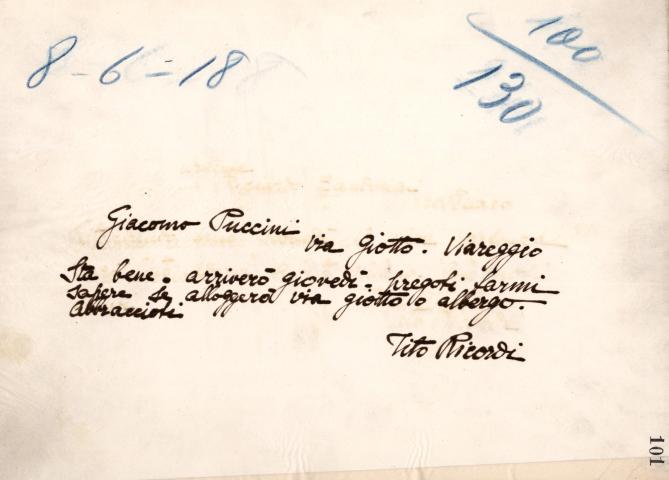 8-6-18
100
130
Giacomo Puccini
via Giotto. Viareggio
Sta bene. arriverò giovedì. pregoti farmi
sapere se alloggerò via giotto o albergo.
Abbraccioti
Tito Ricordi
101